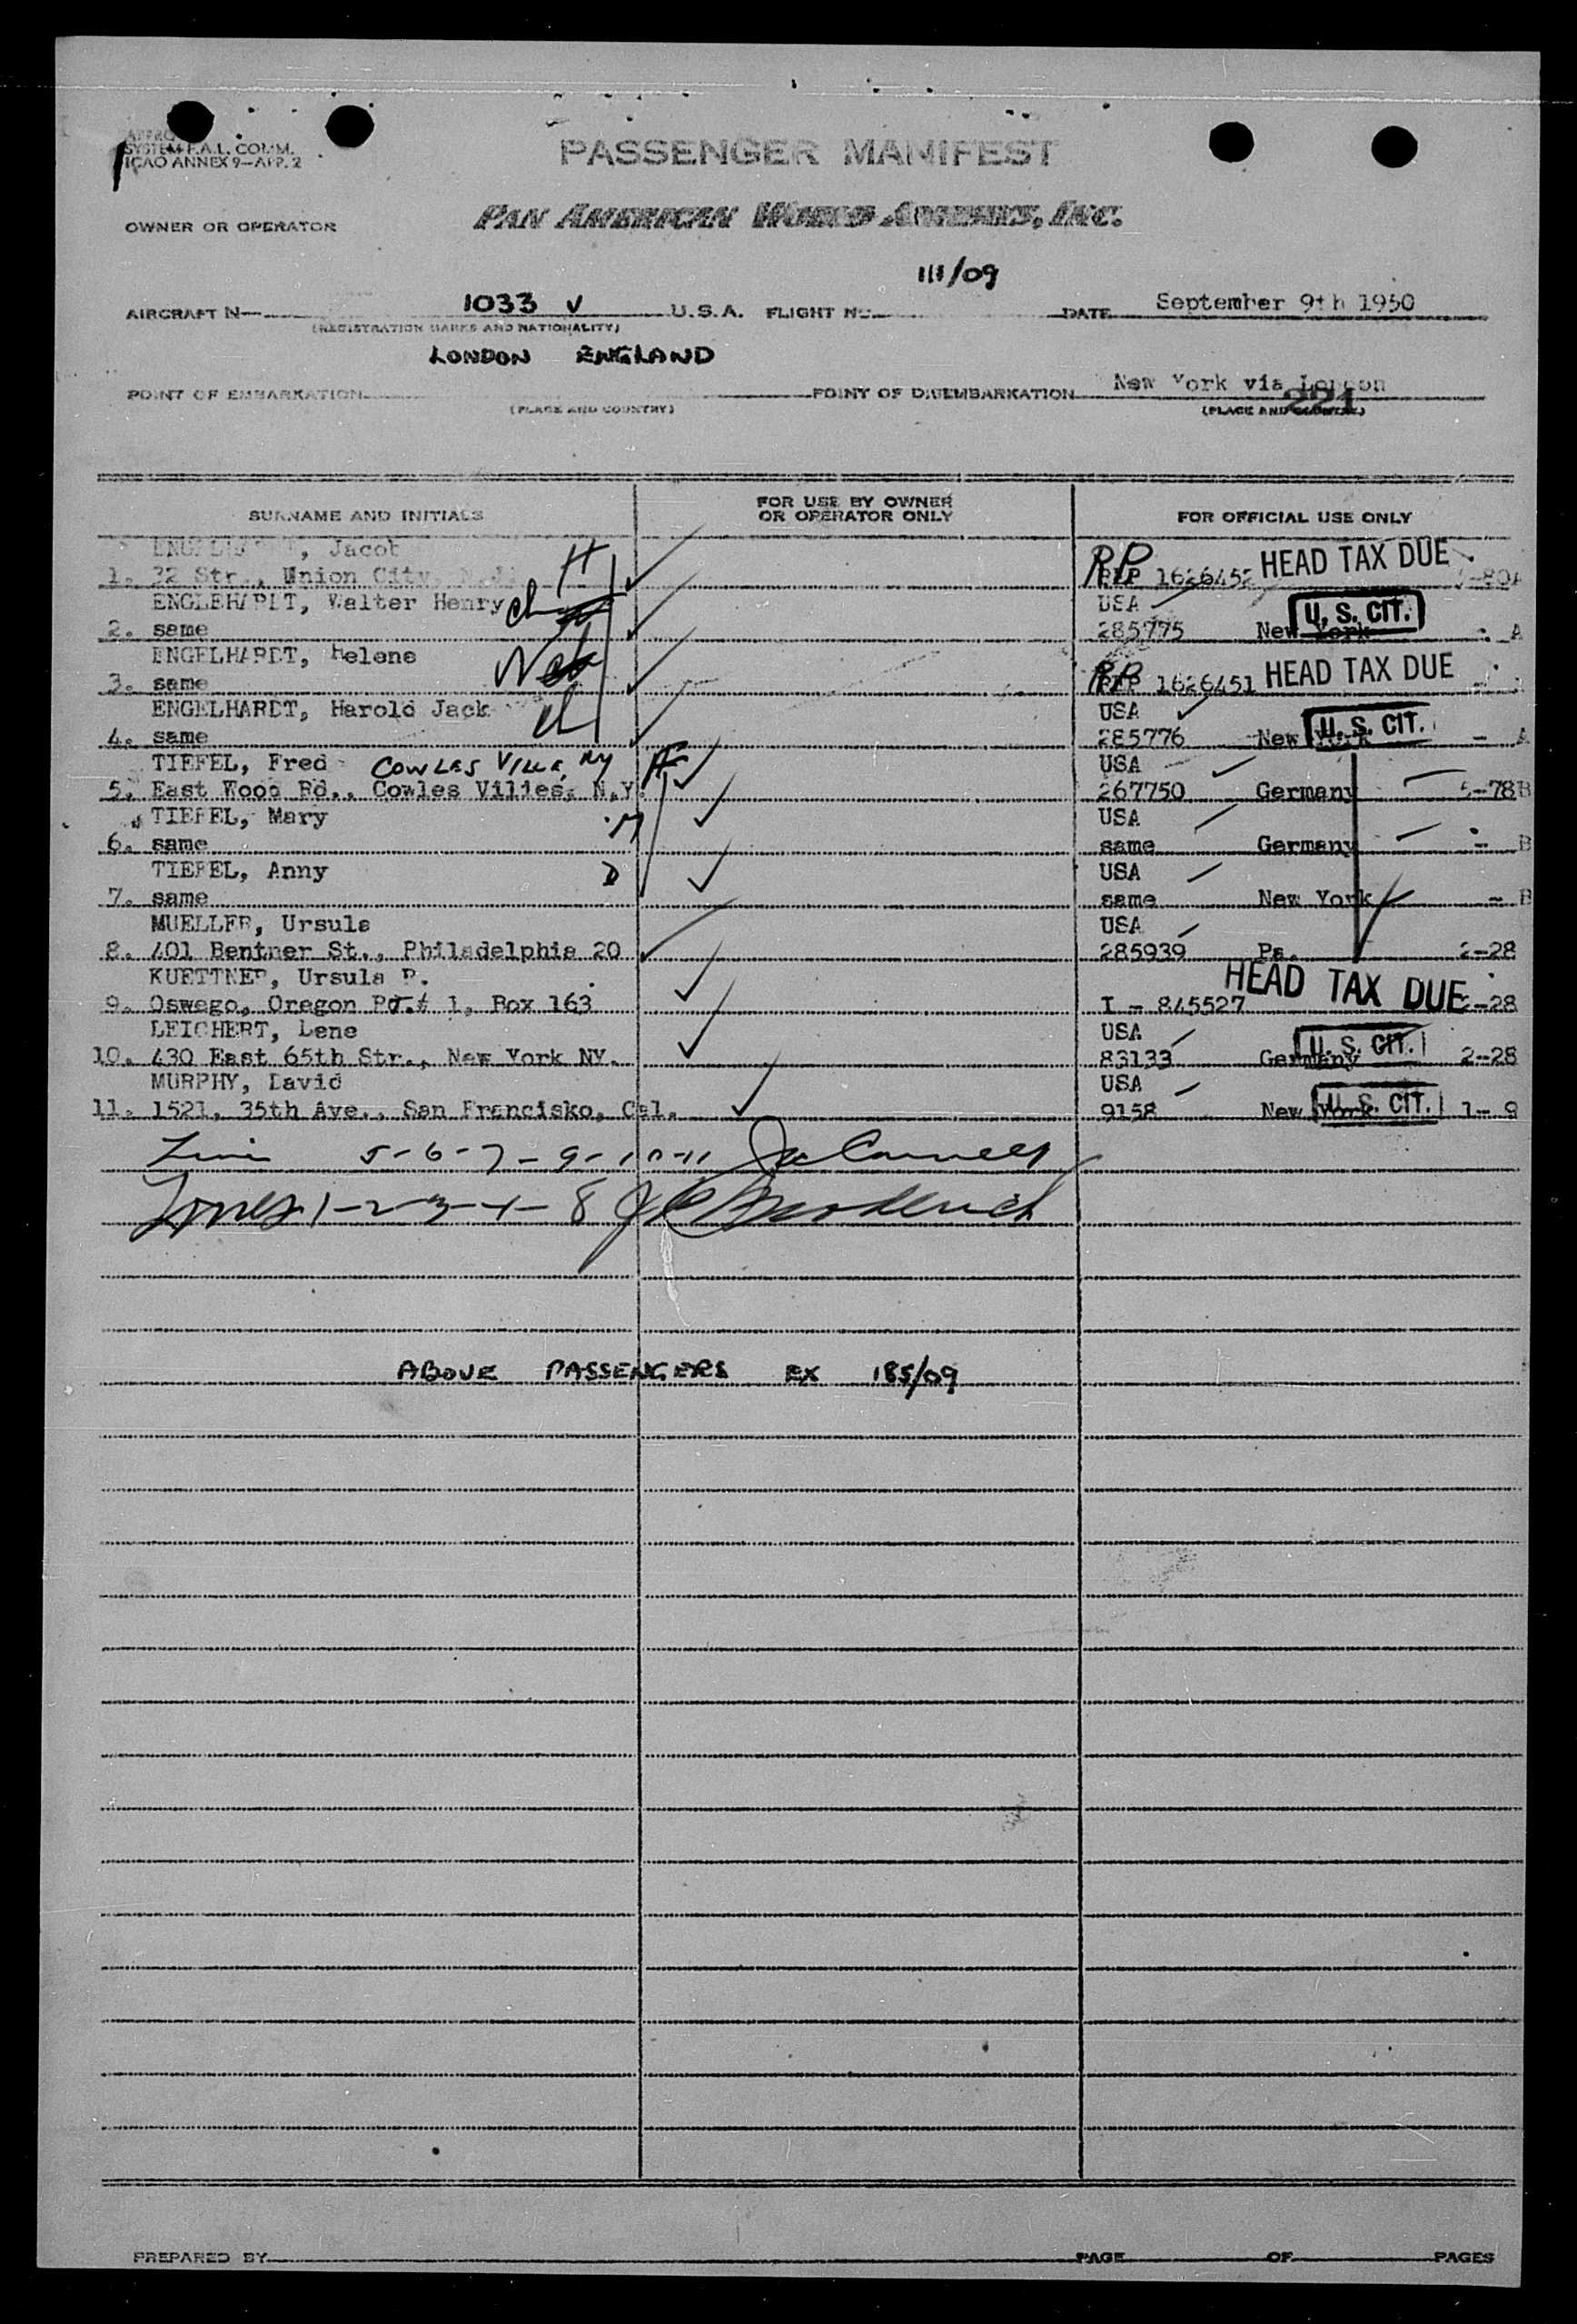 SYSTEM F.A.L. COMM.
ICAO ANNEX 9—APP. 2
PASSENGER MANIFEST
OWNER OR OPERATOR
PAN AMERICAN WORLD AIRWAYS, INC.
111/09
AIRCRAFT N— 1033 V U.S.A. FLIGHT No. DATE September 9th 1950
(REGISTRATION MARKS AND NATIONALITY)
LONDON ENGLAND
POINT OF EMBARKATION POINT OF DISEMBARKATION New York via London
221
(PLACE AND COUNTRY) (PLACE AND COUNTRY)
SURNAME AND INITIALS FOR USE BY OWNER OR OPERATOR ONLY FOR OFFICIAL USE ONLY
, Jacob H
1. 32 Str., Union City, RP 1626452 HEAD TAX DUE
ENGLEHARDT, Walter Henry ch USA
2. same 285775 New York U. S. CIT. A
ENGELHARDT, Helene
3. same RP 1626451 HEAD TAX DUE
ENGELHARDT, Harold Jack ch USA
4. same 285776 New York U. S. CIT. - A
TIEFEL, Fred COWLES VILLE, NY H USA
5. East Wood Rd., Cowles Vilies, N.Y. 267750 Germany 5-78B
TIEFEL, Mary USA
6. same same Germany - B
TIEFEL, Anny D USA
7. same same New York - B
MUELLER, Ursula USA
8. 401 Bentner St., Philadelphia 20 285939 Pa. 2-28
KUETTNER, Ursula R. HEAD TAX DUE
9. Oswego, Oregon Rd.# 1, Box 163 I - 845527 2-28
LEICHERT, Lene USA
10. 430 East 65th Str., New York NY. 83133 Germany U. S. CIT. 2-28
MURPHY, David USA
11. 1521, 35th Ave., San Francisko, Cal. 9158 New York U. S. CIT. 1- 9
5-6-7-9-10-11
1-2-3-4-8
ABOVE PASSENGERS EX 185/09
PREPARED BY PAGE OF PAGES